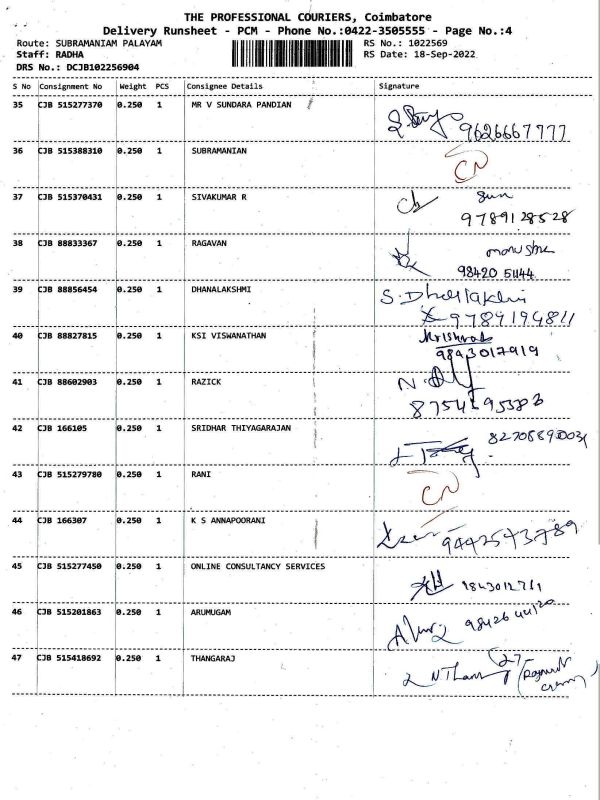 THE PROFESSIONAL COURIERS, Coimbatore
Delivery Runsheet - PCM - Phone No.:0422-3505555 - Page No.:4
Route: SUBRAMANIAM PALAYAM RS No.: 1022569
Staff: RADHA RS Date: 18-Sep-2022
DRS No.: DCJB102256904
S No Consignment No Weight PCS Consignee Details Signature
35 CJB 515277370 0.250 1 MR V SUNDARA PANDIAN
9626667777
36 CJB 515388310 0.250 1 SUBRAMANIAN
CN
37 CJB 515370431 0.250 1 SIVAKUMAR R
9789128528
38 CJB 88833367 0.250 1 RAGAVAN
98420 51144
39 CJB 88856454 0.250 1 DHANALAKSHMI
9789194811
40 CJB 88827815 0.250 1 KSI VISWANATHAN
9843017919
41 CJB 88602903 0.250 1 RAZICK
42 CJB 166105 0.250 1 SRIDHAR THIYAGARAJAN
43 CJB 515279780 0.250 1 RANI
CN
44 CJB 166307 0.250 1 K S ANNAPOORANI
9442543789
45 CJB 515277450 0.250 1 ONLINE CONSULTANCY SERVICES
46 CJB 515201863 0.250 1 ARUMUGAM
47 CJB 515418692 0.250 1 THANGARAJ